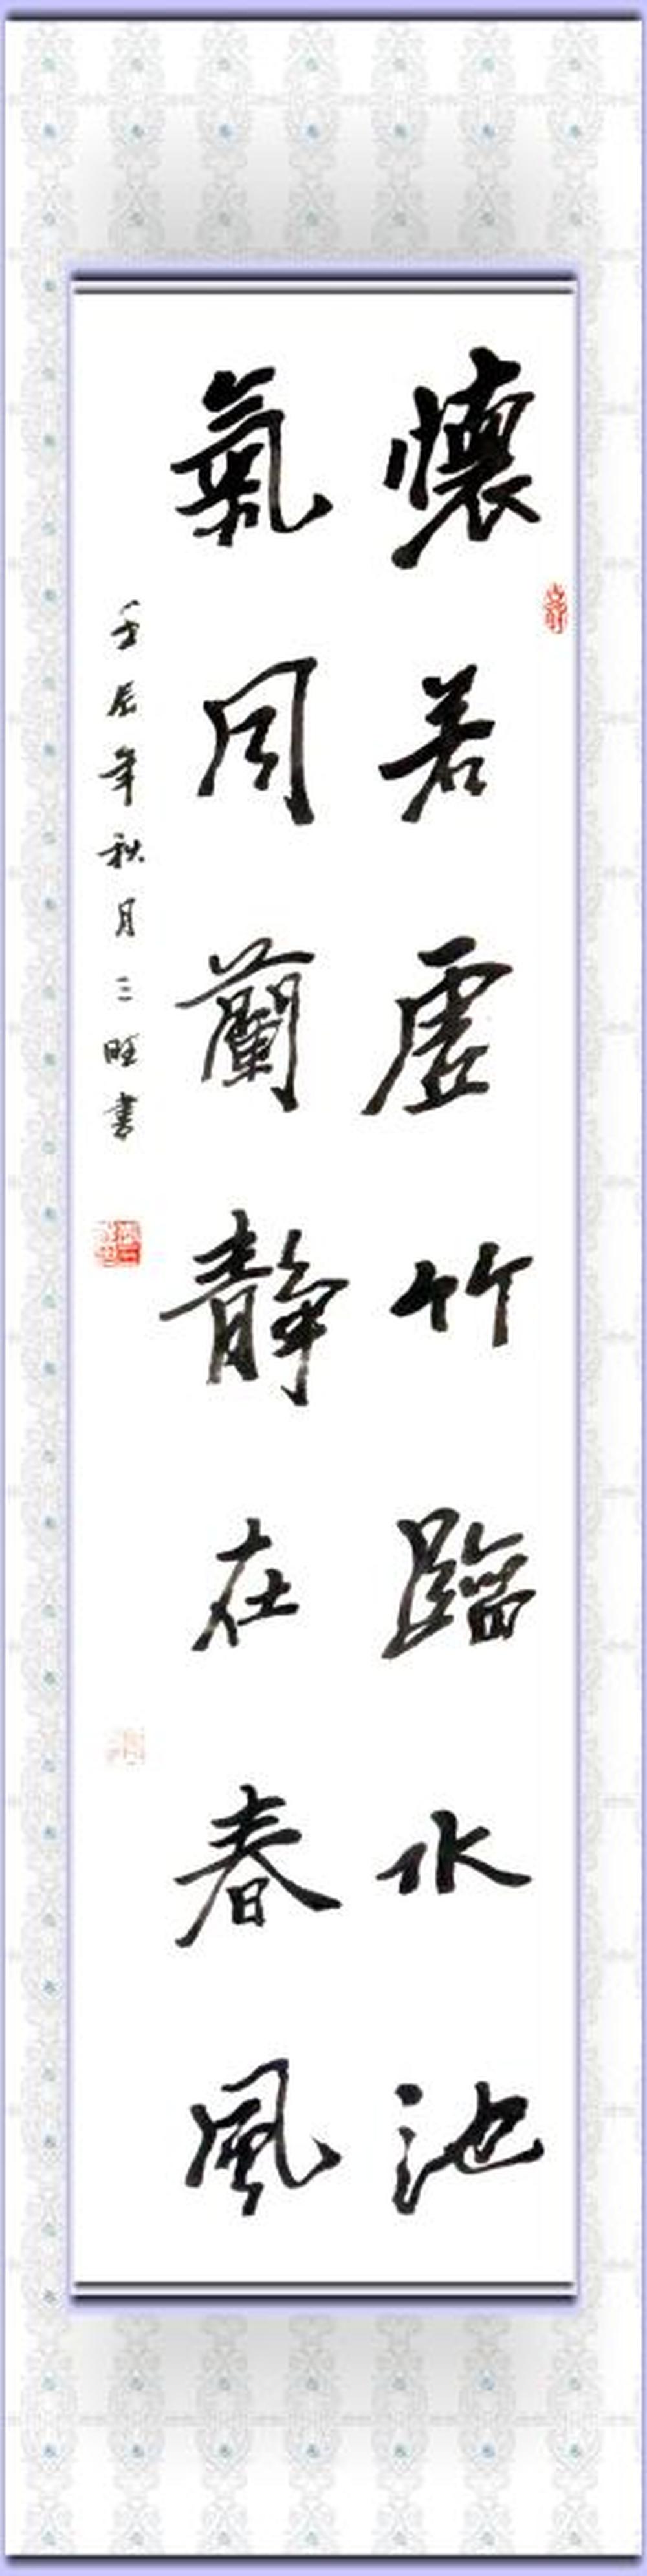 懷若虛竹臨水池
氣同蘭靜在春風
壬辰年秋月三旺書